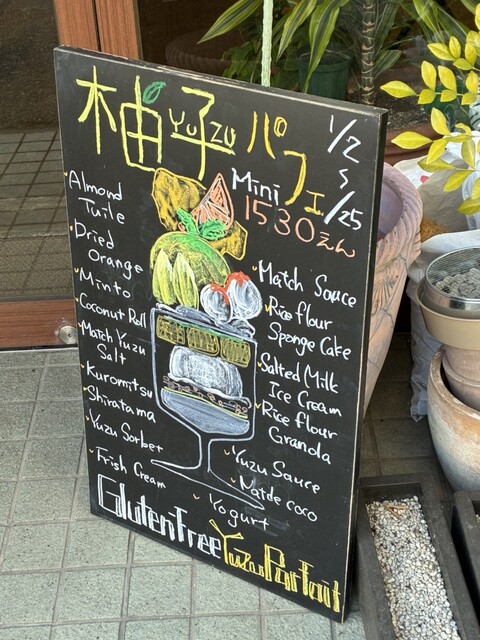 柚子
YUZU
パフェ
1/2
～
1/25
Mini
1530えん
Almond
Tuile
Dried
Orange
Minto
Coconut Roll
Match Yuzu
Salt
Kuromitsu
Shiratama
Yuzu Sorbet
Frish Cream
Match Sauce
Rice flour
Sponge Cake
Salted Milk
Ice Cream
Rice flour
Granola
Yuzu Sauce
Natde coco
Yogurt
Gluten Free Yuzu Parfait